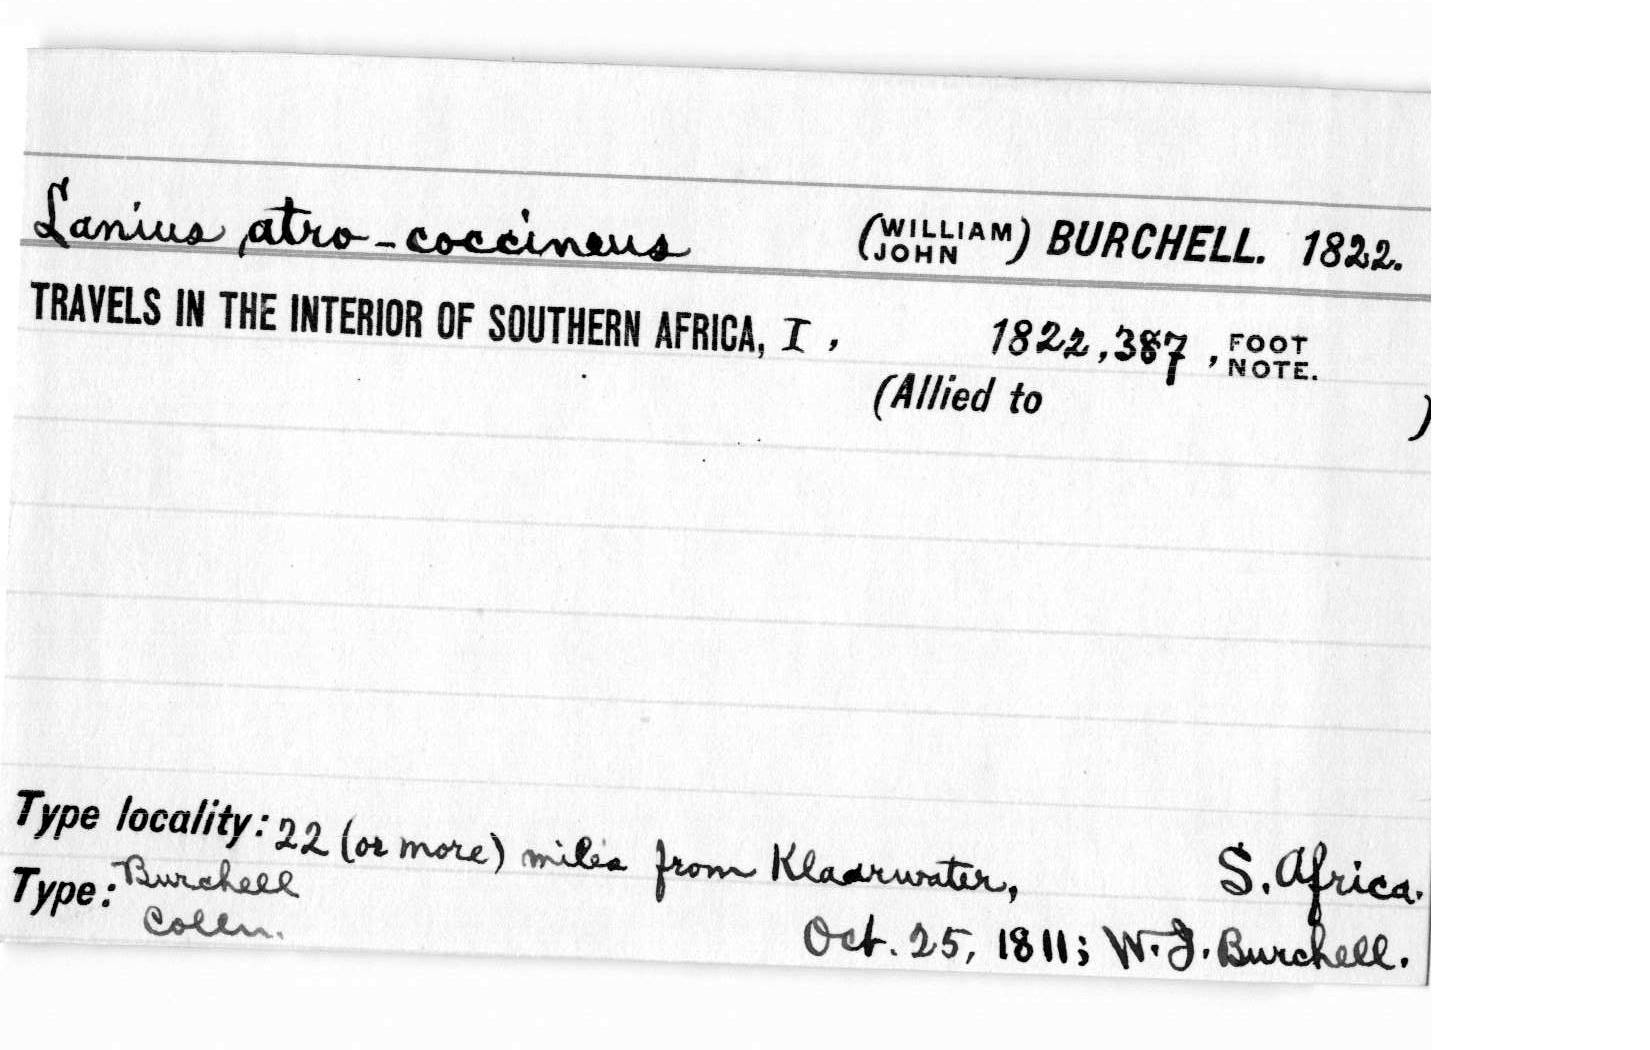 Lanius atro-coccineus (WILLIAM JOHN) BURCHELL. 1822.
TRAVELS IN THE INTERIOR OF SOUTHERN AFRICA, I, 1822, 387, FOOT NOTE.
(Allied to )
Type locality: 22 (or more) miles from Klaarwater, S. Africa.
Type: Burchell Colln. Oct. 25, 1811; W. J. Burchell.